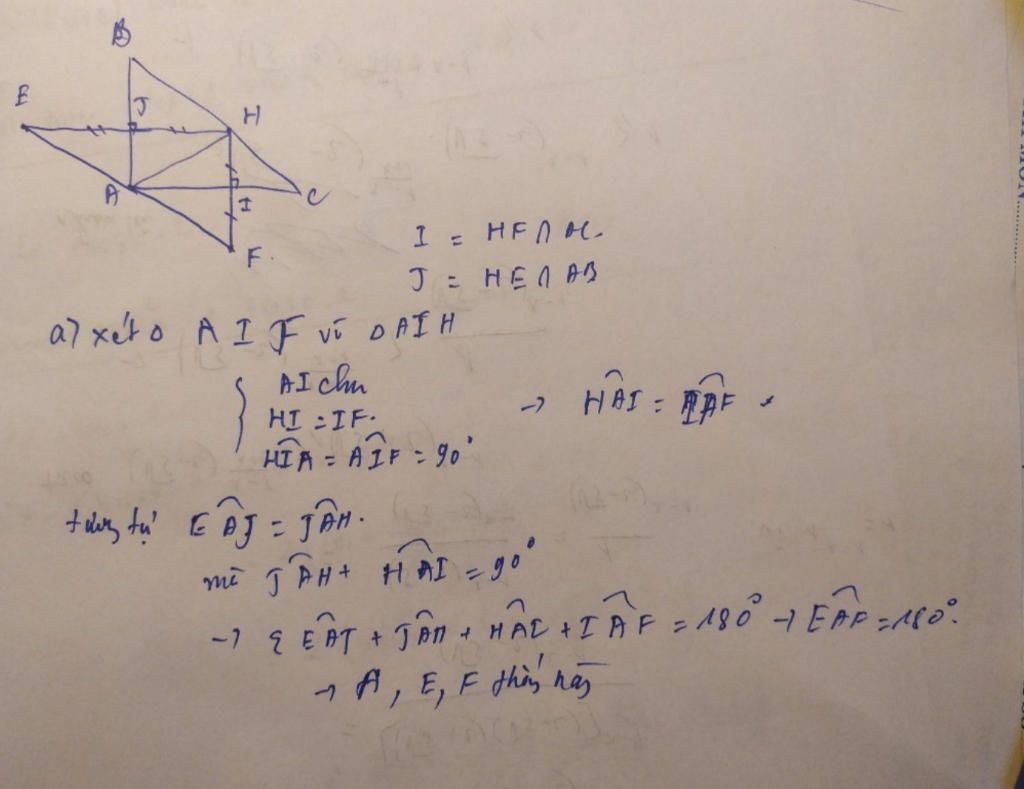 B
E
J
H
A
I
C
F.
I = HF ∩ AC.
J = HE ∩ AB
a) xét Δ A I F và Δ AIH
AI chu
HI = IF.
HIA = AIF = 90°
→ HAI = IAF
tương tự EAJ = JAH.
mà JAH + HAI = 90°
→ EAJ + JAH + HAI + IAF = 180° → EAF = 180°.
→ A, E, F thẳng hàng